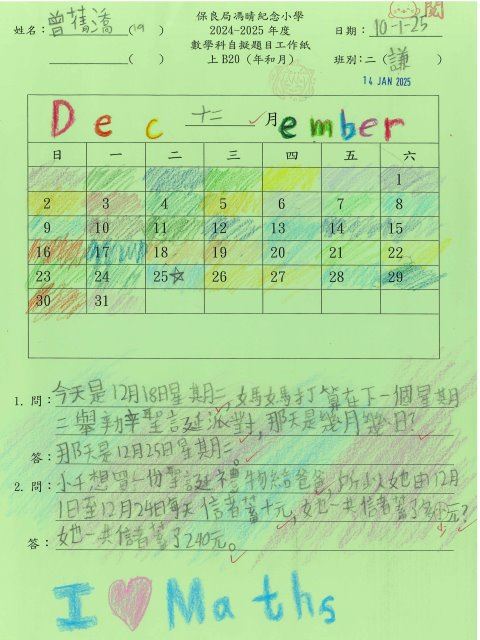 保良局馮晴紀念小學
姓名：曾蒨潏(19) 2024-2025 年度 日期：10-1-25
數學科自擬題目工作紙
( ) 上 B20（年和月） 班別：二（謙）
14 JAN 2025
Dec 十二 月 ember
日 一 二 三 四 五 六
1
2 3 4 5 6 7 8
9 10 11 12 13 14 15
16 17 18 19 20 21 22
23 24 25☆ 26 27 28 29
30 31
1. 問：今天是12月18日星期二,媽媽打算在下一個星期
二舉辦聖誕派對,那天是幾月幾日?
答：那天是12月25日星期二。
2. 問：小千想買一份聖誕禮物給爸爸,所以她由12月
1日至12月24日每天儲蓄十元,她一共儲蓄了多少元?
答：她一共儲蓄了240元。
I Maths